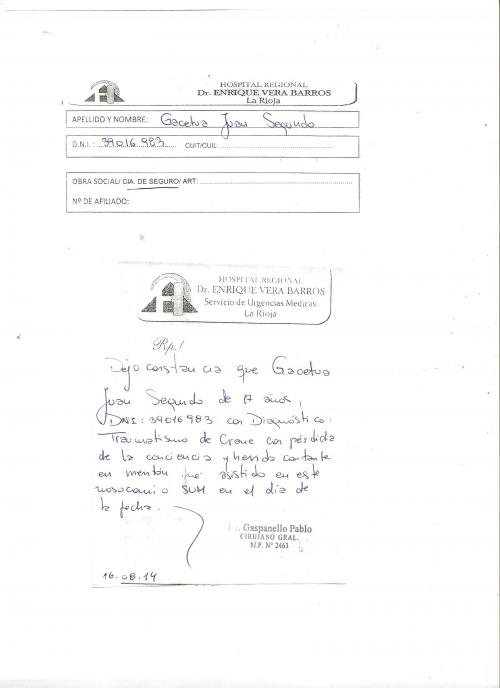 HOSPITAL REGIONAL
Dr. ENRIQUE VERA BARROS
La Rioja
APELLIDO Y NOMBRE: Gacetua Juan Segundo
D.N.I.: 39016983 CUIT/CUIL:
OBRA SOCIAL/ CIA. DE SEGURO/ ART:
Nº DE AFILIADO:
HOSPITAL REGIONAL
Dr. ENRIQUE VERA BARROS
Servicio de Urgencias Medicas.
La Rioja
Rp./
Dejo constancia que Gacetua
Juan Segundo de 17 años,
DNI: 39016983 con Diagnóstico:
Traumatismo de Craneo con pérdida
de la conciencia y herida cortante
en mentón fue asistido en este
nosocomio SUM en el día de
la fecha.
Gaspanello Pablo
CIRUJANO GRAL.
M.P. Nº 2463
16.08.14